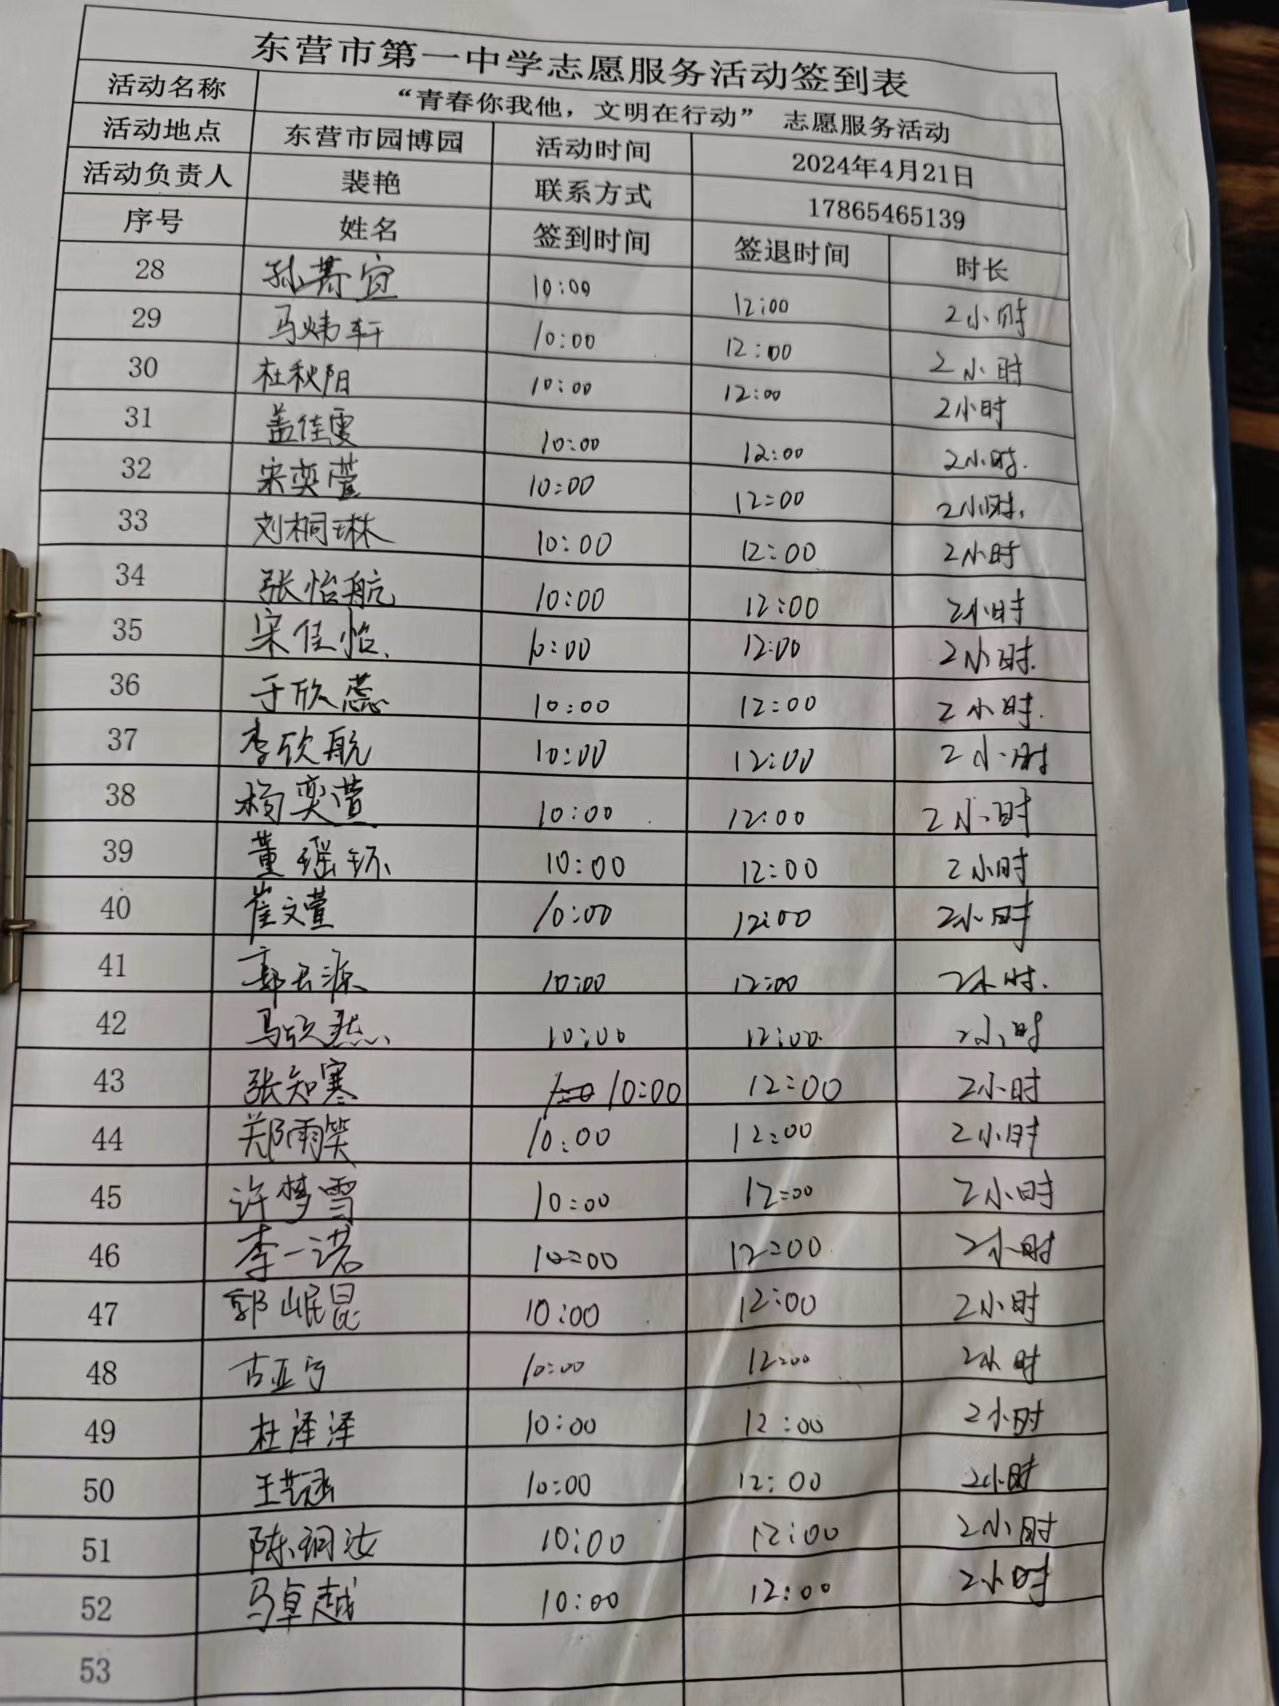 东营市第一中学志愿服务活动签到表
活动名称 “青春你我他，文明在行动” 志愿服务活动
活动地点 东营市园博园 活动时间 2024年4月21日
活动负责人 裴艳 联系方式 17865465139
序号 姓名 签到时间 签退时间 时长
28 孙 宜 10:00 12:00 2小时
29 马炜轩 10:00 12:00 2小时
30 杜秋阳 10:00 12:00 2小时
31 盖佳雯 10:00 12:00 2小时.
32 宋奕萱 10:00 12:00 2小时.
33 刘桐琳 10:00 12:00 2小时
34 张怡航 10:00 12:00 2小时
35 宋佳怡 10:00 12:00 2小时.
36 于欣蕊 10:00 12:00 2小时.
37 李欣航 10:00 12:00 2小时
38 杨奕萱 10:00 12:00 2小时
39 董瑶 10:00 12:00 2小时
40 崔文萱 10:00 12:00 2小时
41 郭天源 10:00 12:00 2小时.
42 马欣然 10:00 12:00 2小时
43 张知寒 10:00 12:00 2小时
44 郑雨笑 10:00 12:00 2小时
45 许梦雪 10:00 12:00 2小时
46 李一诺 10:00 12:00 2小时
47 郭岷昆 10:00 12:00 2小时
48 古亚宁 10:00 12:00 2小时
49 杜泽泽 10:00 12:00 2小时
50 王艺涵 10:00 12:00 2小时
51 陈 汝 10:00 12:00 2小时
52 马卓越 10:00 12:00 2小时
53